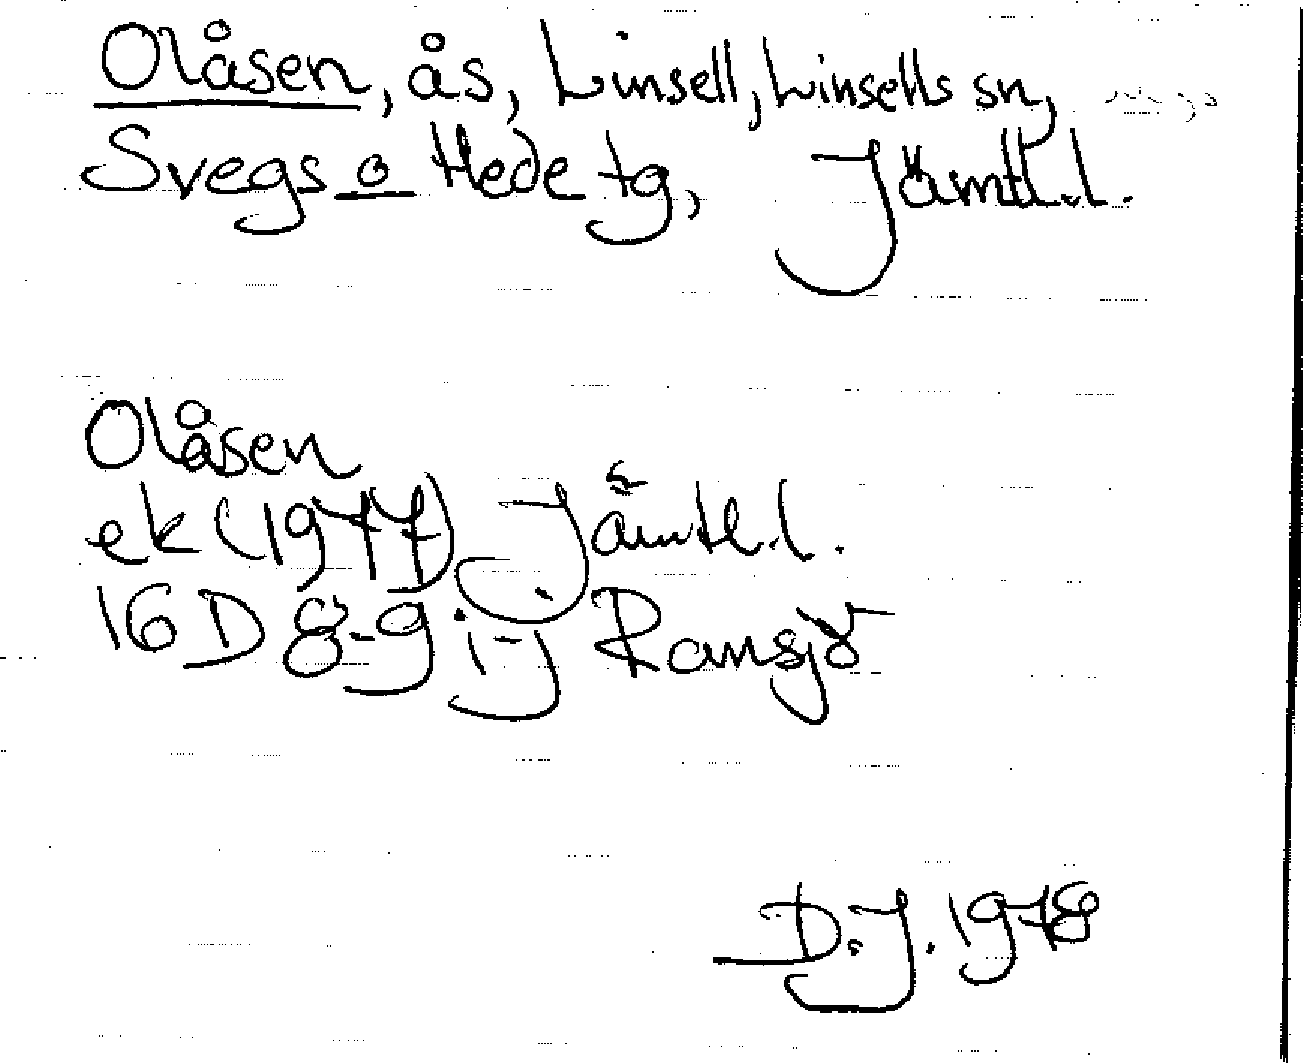 Olåsen, ås, Linsell, Linsells sn,
Svegs o Hede tg, Jämtl.l.
Olåsen
ek (1977) Jämtl.l.
16 D 8-9 i-j Ransjö
D.J. 1978